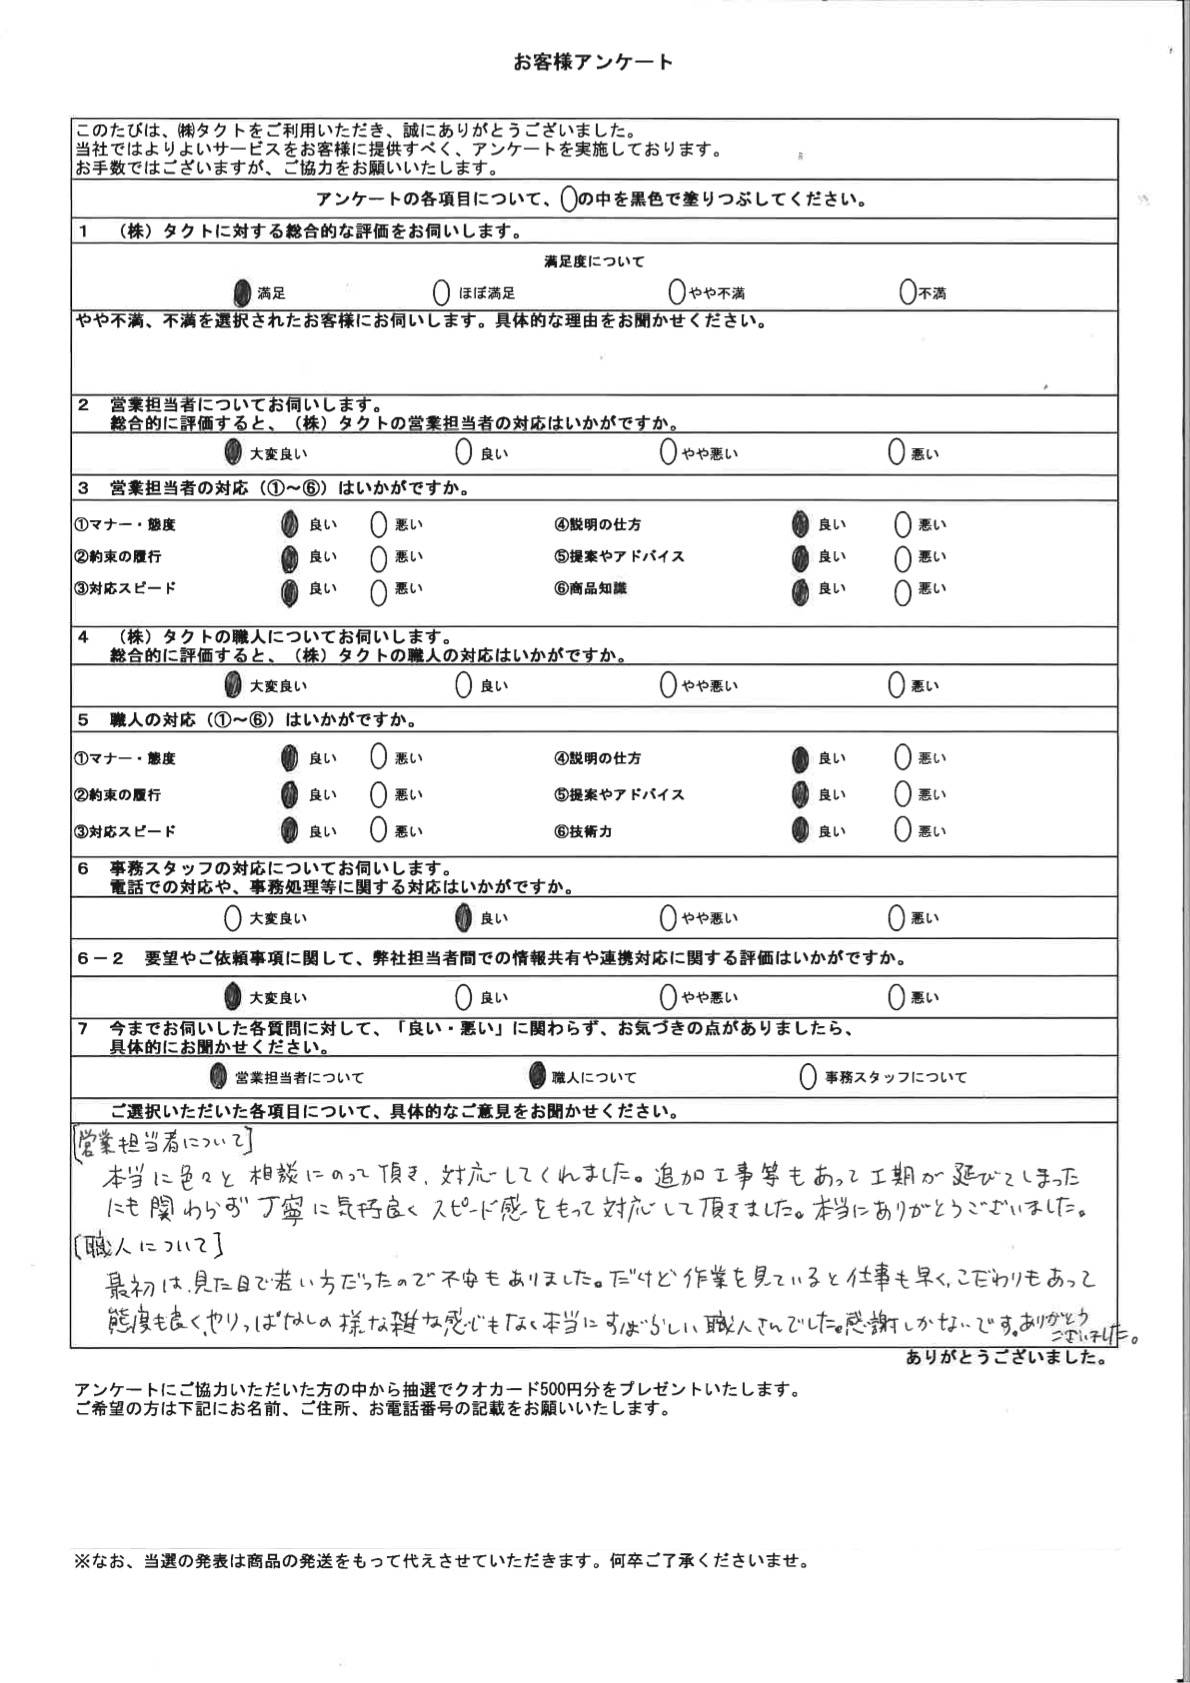 お客様アンケート
このたびは、㈱タクトをご利用いただき、誠にありがとうございました。
当社ではよりよいサービスをお客様に提供すべく、アンケートを実施しております。
お手数ではございますが、ご協力をお願いいたします。
アンケートの各項目について、○の中を黒色で塗りつぶしてください。
1　（株）タクトに対する総合的な評価をお伺いします。
満足度について
●満足　○ほぼ満足　○やや不満　○不満
やや不満、不満を選択されたお客様にお伺いします。具体的な理由をお聞かせください。
2　営業担当者についてお伺いします。
総合的に評価すると、（株）タクトの営業担当者の対応はいかがですか。
●大変良い　○良い　○やや悪い　○悪い
3　営業担当者の対応（①～⑥）はいかがですか。
①マナー・態度　●良い　○悪い　④説明の仕方　●良い　○悪い
②約束の履行　●良い　○悪い　⑤提案やアドバイス　●良い　○悪い
③対応スピード　●良い　○悪い　⑥商品知識　●良い　○悪い
4　（株）タクトの職人についてお伺いします。
総合的に評価すると、（株）タクトの職人の対応はいかがですか。
●大変良い　○良い　○やや悪い　○悪い
5　職人の対応（①～⑥）はいかがですか。
①マナー・態度　●良い　○悪い　④説明の仕方　●良い　○悪い
②約束の履行　●良い　○悪い　⑤提案やアドバイス　●良い　○悪い
③対応スピード　●良い　○悪い　⑥技術力　●良い　○悪い
6　事務スタッフの対応についてお伺いします。
電話での対応や、事務処理等に関する対応はいかがですか。
○大変良い　●良い　○やや悪い　○悪い
6－2　要望やご依頼事項に関して、弊社担当者間での情報共有や連携対応に関する評価はいかがですか。
●大変良い　○良い　○やや悪い　○悪い
7　今までお伺いした各質問に対して、「良い・悪い」に関わらず、お気づきの点がありましたら、
具体的にお聞かせください。
●営業担当者について　●職人について　○事務スタッフについて
ご選択いただいた各項目について、具体的なご意見をお聞かせください。
[営業担当者について]
本当に色々と相談にのって頂き、対応してくれました。追加工事等もあって工期が延びてしまった
にも関わらず丁寧に気持良くスピード感をもって対応して頂きました。本当にありがとうございました。
[職人について]
最初は、見た目で若い方だったので不安もありました。だけど作業を見ていると仕事も早く、こだわりもあって
態度も良く、やりっぱなしの様な雑な感じもなく本当にすばらしい職人さんでした。感謝しかないです。ありがとう
ございました。
ありがとうございました。
アンケートにご協力いただいた方の中から抽選でクオカード500円分をプレゼントいたします。
ご希望の方は下記にお名前、ご住所、お電話番号の記載をお願いいたします。
※なお、当選の発表は商品の発送をもって代えさせていただきます。何卒ご了承くださいませ。